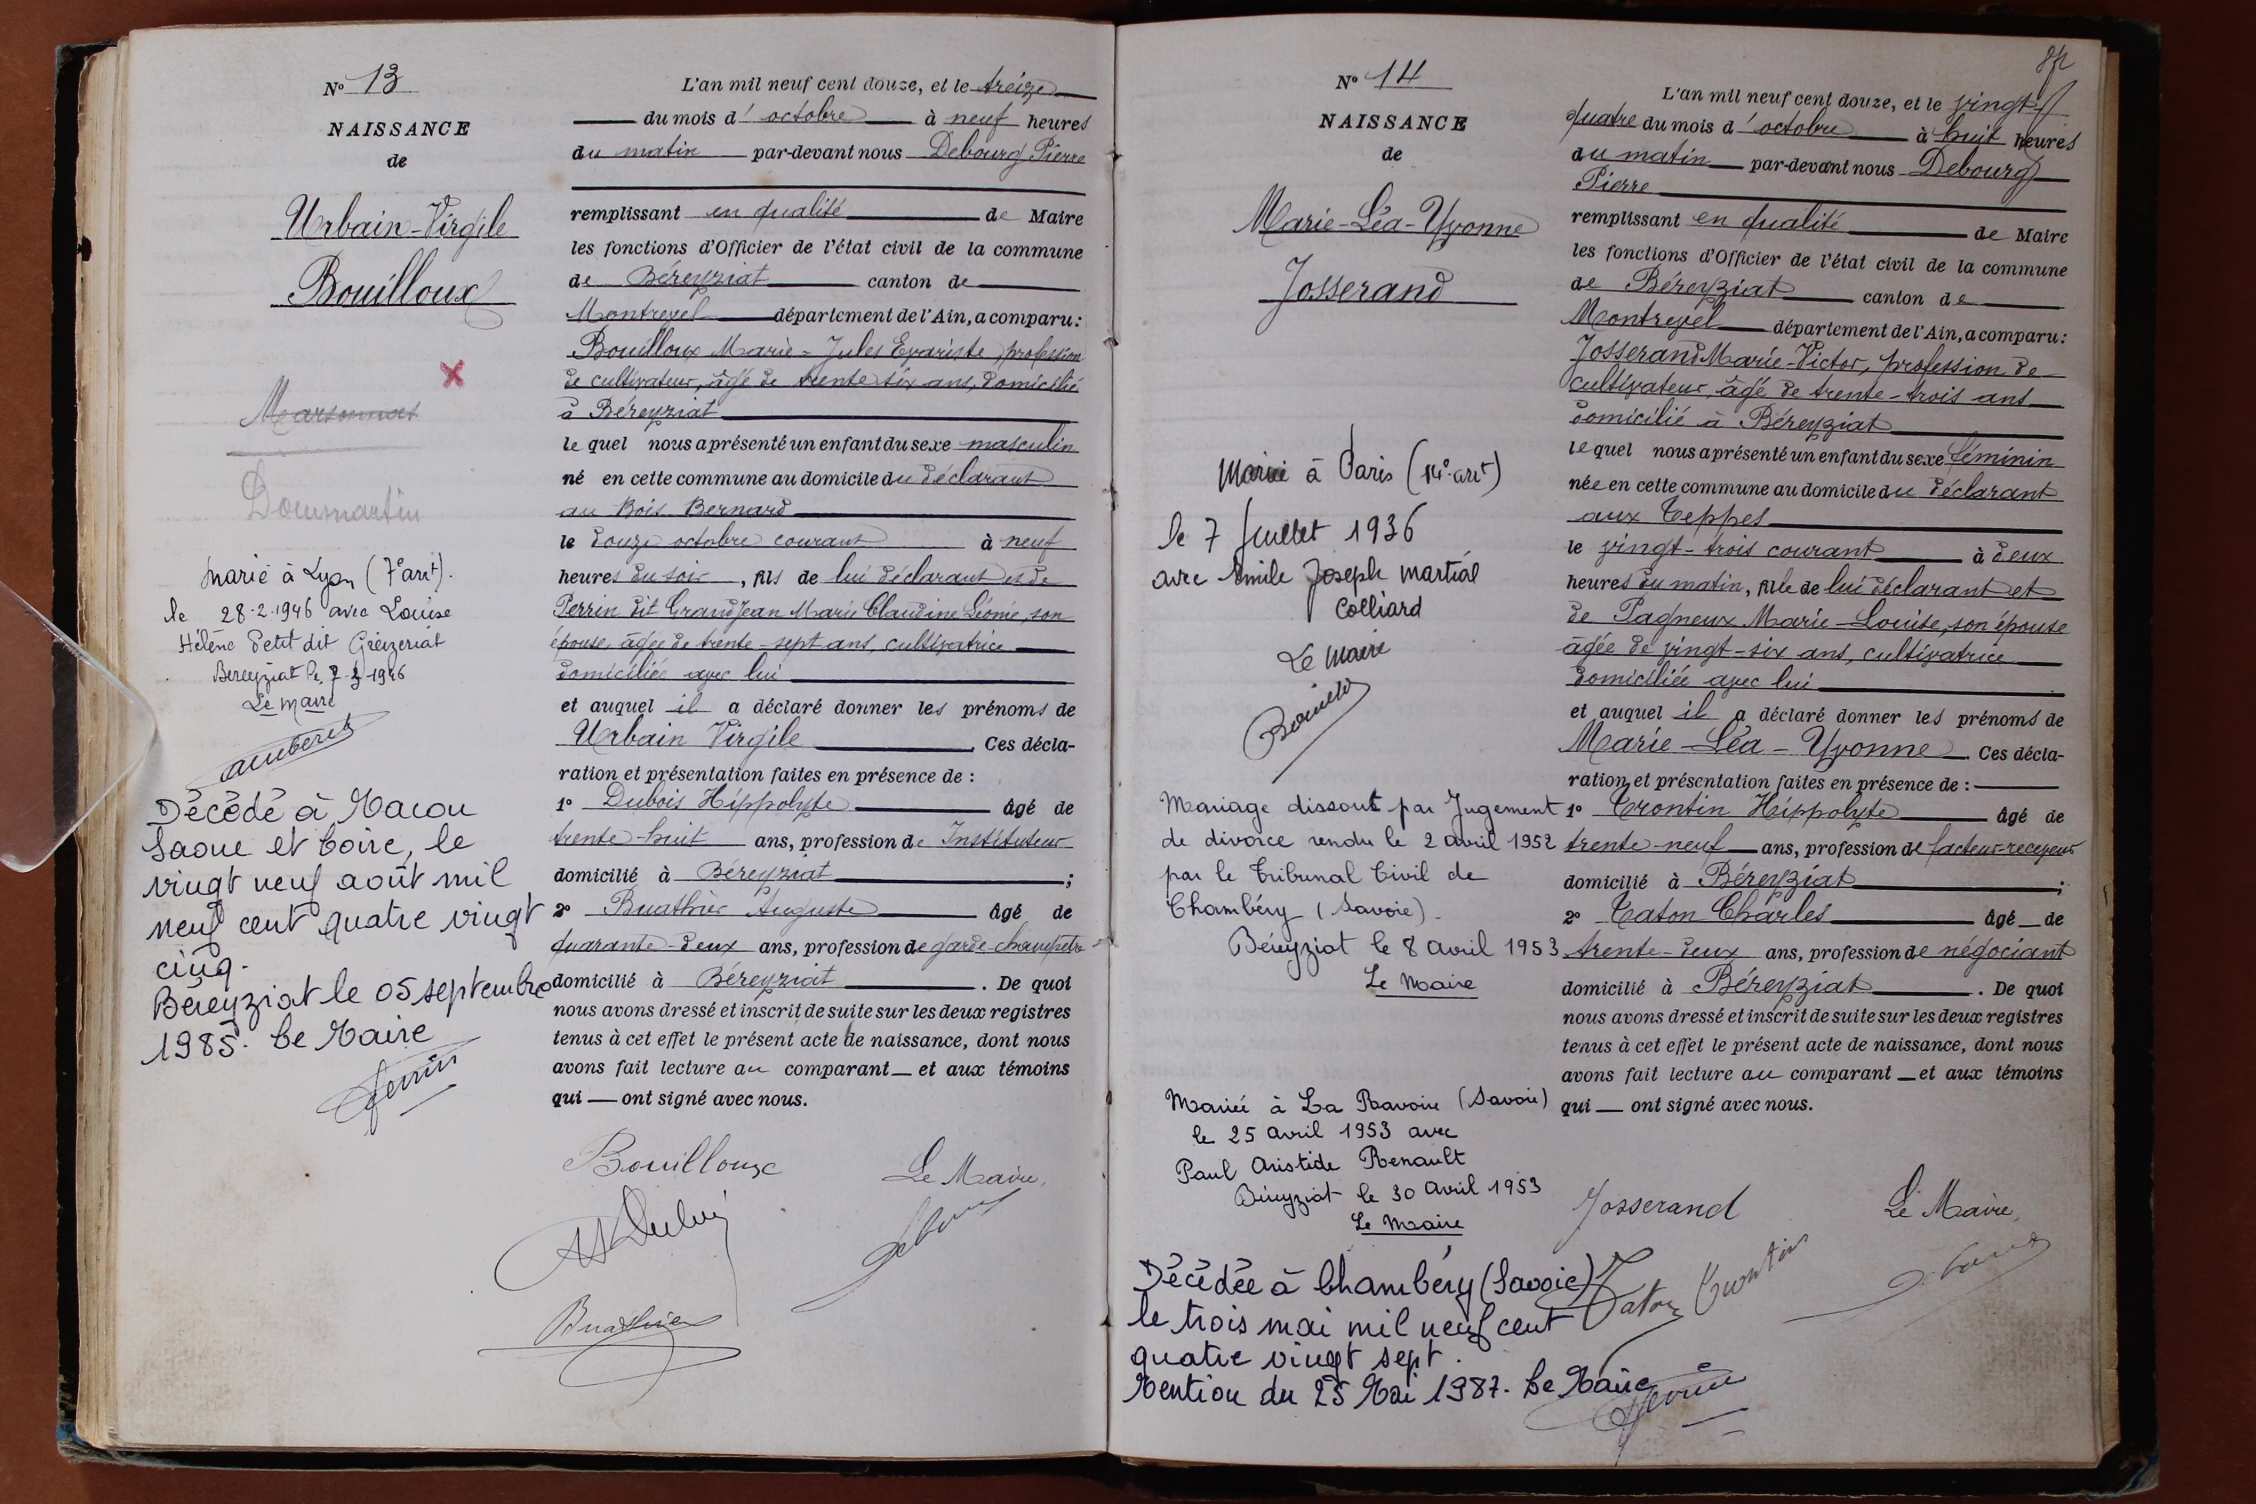 N° 13
NAISSANCE
de
Urbain-Virgile
Bouilloux
Marsonnas
Dommartin
marié à Lyon (7e arrt).
le 28-2-1946 avec Louise
Hélène Petit dit Grézériat
Bereyziat le 7-3-1946
Le maire
Décédé à Macon
Saone et Loire, le
vingt neuf août mil
neuf cent quatre vingt
cinq.
Béreyziat le 05 septembre
1985. Le Maire
L'an mil neuf cent douze, et le treize
du mois d'octobre à neuf heures
du matin par-devant nous Debourg Pierre
remplissant en qualité de Maire
les fonctions d'Officier de l'état civil de la commune
de Béreyziat canton de
Montrevel département de l'Ain, a comparu:
Bouilloux Marie-Jules Evariste, profession
de cultivateur, âgé de trente six ans, domicilié
à Béreyziat
le quel nous a présenté un enfant du sexe masculin
né en cette commune au domicile du déclarant
au Bois Bernard
le douze octobre courant à neuf
heures du soir, fils de lui déclarant et de
Perrin dit Grandjean Marie Claudine Léonie, son
épouse âgée de trente-sept ans, cultivatrice
domiciliée avec lui
et auquel il a déclaré donner les prénoms de
Urbain Virgile. Ces décla-
ration et présentation faites en présence de :
1° Dubois Hippolyte âgé de
trente-huit ans, profession de Instituteur
domicilié à Béreyziat ;
2° Buathier Auguste âgé de
quarante-deux ans, profession de garde-champêtre
domicilié à Béreyziat. De quoi
nous avons dressé et inscrit de suite sur les deux registres
tenus à cet effet le présent acte de naissance, dont nous
avons fait lecture au comparant et aux témoins
qui ont signé avec nous.
Bouilloux
Le Maire,
Buathier
N° 14
NAISSANCE
de
Marie-Léa-Yvonne
Josserand
Mariée à Paris (14e arrt)
le 7 Juillet 1936
avec Emile Joseph Martial
Colliard
Le Maire
Mariage dissout par Jugement
de divorce rendu le 2 avril 1952
par le Tribunal Civil de
Chambéry (Savoie).
Béreyziat le 8 avril 1953
Le Maire
Mariée à La Ravoire (Savoie)
le 25 avril 1953 avec
Paul Aristide Renault
Béreyziat le 30 avril 1953
Le Maire
Décédée à Chambéry (Savoie)
le trois mai mil neuf cent
quatre vingt sept.
Mention du 25 Mai 1987. Le Maire
L'an mil neuf cent douze, et le vingt
quatre du mois d'octobre à huit heures
du matin par-devant nous Debourg
Pierre
remplissant en qualité de Maire
les fonctions d'Officier de l'état civil de la commune
de Béreyziat canton de
Montrevel département de l'Ain, a comparu:
Josserand Marie-Victor, profession de
cultivateur âgé de trente-trois ans
domicilié à Béreyziat
le quel nous a présenté un enfant du sexe féminin
née en cette commune au domicile du déclarant
aux Teppes
le vingt-trois courant à deux
heures du matin, fille de lui déclarant et
de Pagneux Marie-Louise, son épouse
âgée de vingt-six ans, cultivatrice
domiciliée avec lui
et auquel il a déclaré donner les prénoms de
Marie-Léa-Yvonne. Ces décla-
ration et présentation faites en présence de :
1° Trontin Hippolyte âgé de
trente-neuf ans, profession de facteur-receveur
domicilié à Béreyziat ;
2° Taton Charles âgé de
trente-deux ans, profession de négociant
domicilié à Béreyziat. De quoi
nous avons dressé et inscrit de suite sur les deux registres
tenus à cet effet le présent acte de naissance, dont nous
avons fait lecture au comparant et aux témoins
qui ont signé avec nous.
Josserand
Le Maire,
Taton Trontin